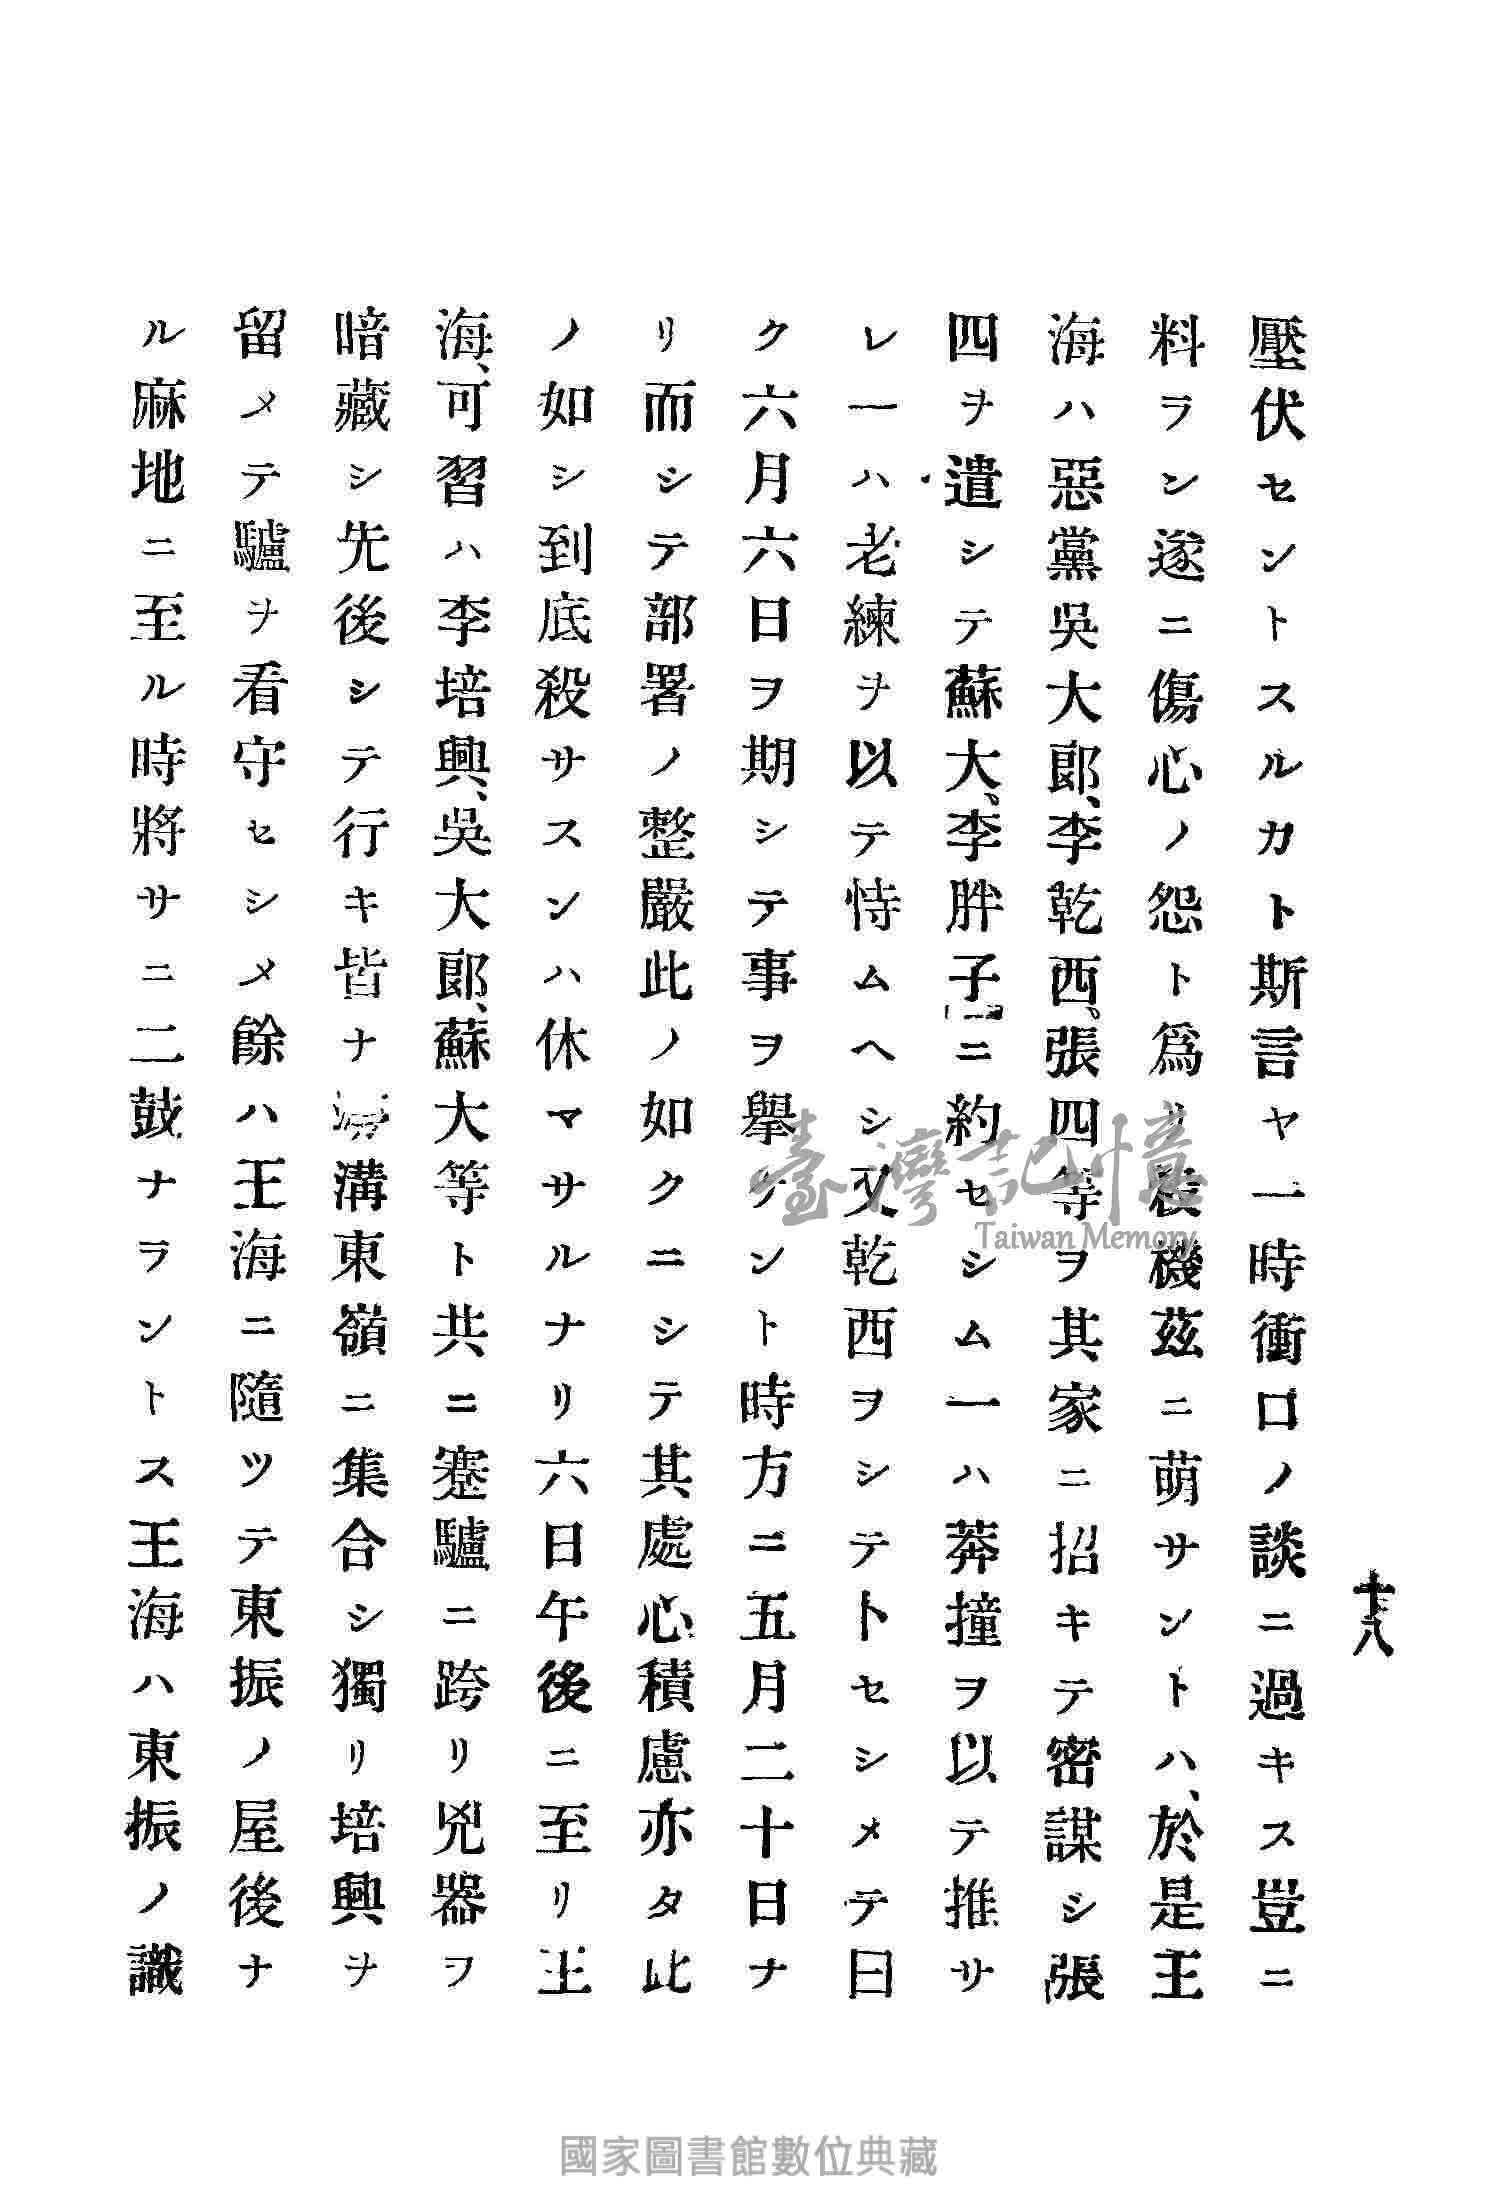 十八
壓伏セントスルカト斯言ヤ一時衝口ノ談ニ過キス豈ニ
料ラン遂ニ傷心ノ怨ト爲リ殺機茲ニ萌サントハ、於是王
海ハ惡黨吳大郞、李乾西。張四等ヲ其家ニ招キテ密謀シ張
四ヲ遣シテ蘇大、李胖子ニ約セシム一ハ莽撞ヲ以テ推サ
レ一ハ老練ヲ以テ恃ムヘシ又乾西ヲシテトセシメテ曰
ク六月六日ヲ期シテ事ヲ擧ケント時方ニ五月二十日ナ
リ而シテ部署ノ整嚴此ノ如クニシテ其處心積慮亦タ此
ノ如シ到底殺サスンハ休マサルナリ六日午後ニ至リ王
海、可習ハ李培興、吳大郞、蘇大等ト共ニ蹇驢ニ跨リ兇器ヲ
暗藏シ先後シテ行キ皆ナ溝東嶺ニ集合シ獨リ培興ヲ
留メテ驢ヲ看守セシメ餘ハ王海ニ隨ツテ東振ノ屋後ナ
ル麻地ニ至ル時將サニ二鼓ナラントス王海ハ東振ノ識
臺灣記憶
Taiwan Memory
國家圖書館數位典藏